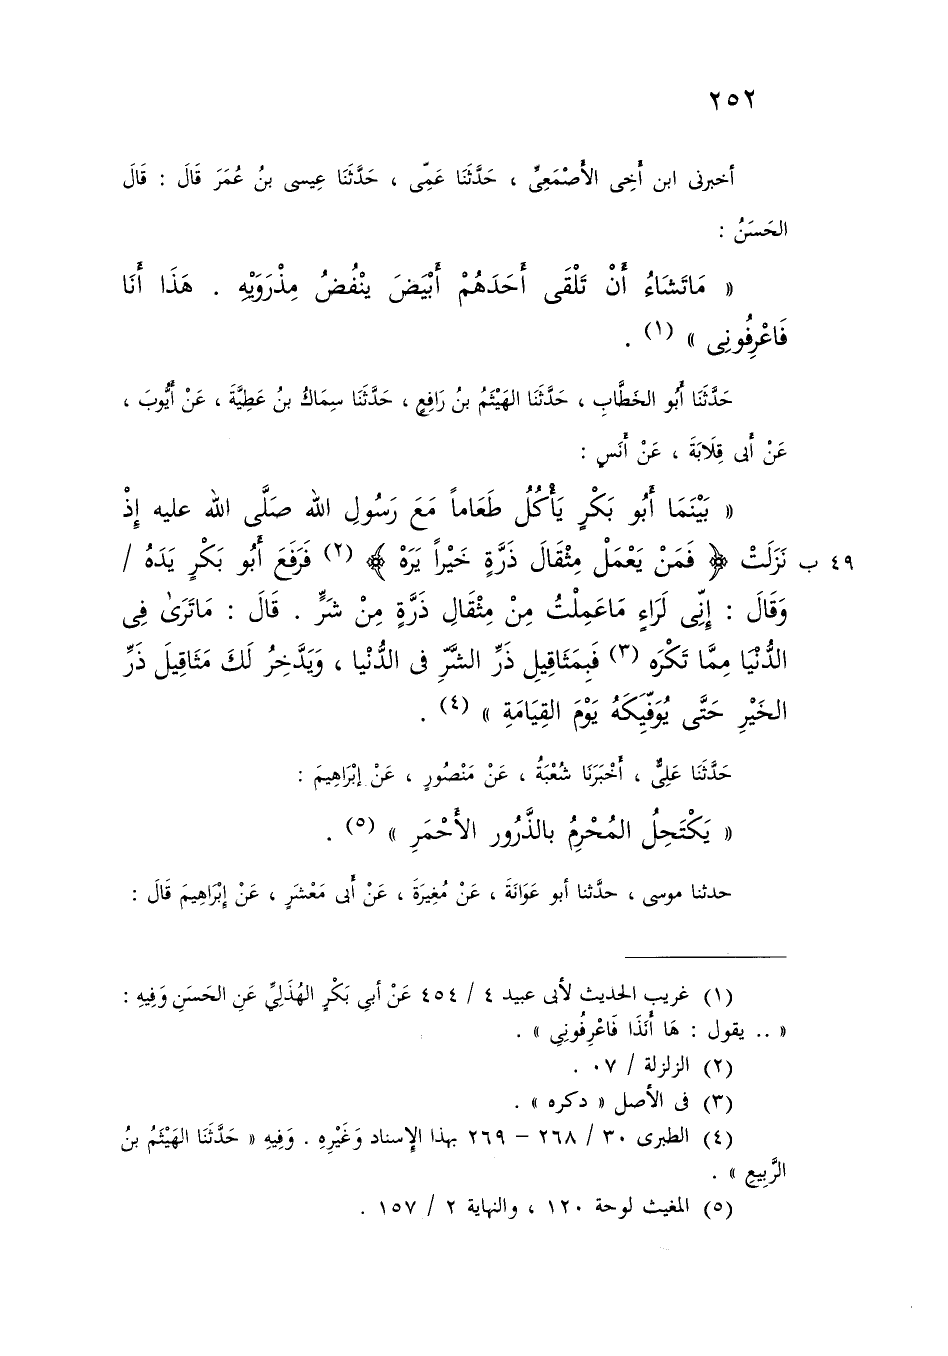 ٢٥٢
أخبرنى ابن أَخِى الأَصْمَعِىِّ ، حَدَّثَنَا عَمِّى ، حَدَّثَنَا عِيسى بنُ عُمَرَ قَالَ : قَالَ
الحَسَنُ :
« مَاتَشَاءُ أَنْ تَلْقَى أَحَدَهُمْ أَبْيَضَ يَنْفُضُ مِذْرَوَيْهِ . هَذَا أَنَا
فَاعْرِفُونِى » (١) .
حَدَّثَنَا أَبُو الخَطَّابِ ، حَدَّثَنَا الهَيْثَمُ بنُ رَافِعٍ ، حَدَّثَنَا سِمَاكُ بنُ عَطِيَّةَ ، عَنْ أَيُّوبَ ،
عَنْ أَبى قِلَابَةَ ، عَنْ أَنَسٍ :
« بَيْنَمَا أَبُو بَكْرٍ يَأْكُلُ طَعَاماً مَعَ رَسُولِ الله صَلَّى الله عليه إِذْ
٤٩ ب نَزَلَتْ ﴿ فَمَنْ يَعْمَلْ مِثْقَالَ ذَرَّةٍ خَيْراً يَرَهْ ﴾ (٢) فَرَفَعَ أَبُو بَكْرٍ يَدَهُ /
وَقَالَ : إِنِّى لَرَاءٍ مَاعَمِلْتُ مِنْ مِثْقَالِ ذَرَّةٍ مِنْ شَرٍّ . قَالَ : مَاتَرَىٰ فِى
الدُّنْيَا مِمَّا تَكْرَه (٣) فَبِمَثَاقِيلِ ذَرِّ الشَّرِّ فى الدُّنْيا ، وَيَدَّخِرُ لَكَ مَثَاقِيلَ ذَرِّ
الخَيْرِ حَتَّى يُوَفِّيَكَهُ يَوْمَ القِيَامَةِ » (٤) .
حَدَّثَنَا عَلِىٌّ ، أَخْبَرَنَا شُعْبَةُ ، عَنْ مَنْصُورٍ ، عَنْ إبْرَاهِيمَ :
« يَكْتَحِلُ المُحْرِمُ بالذَّرُور الأَحْمَرِ » (٥) .
حدثنا موسى ، حدَّثنا أبو عَوَانَةَ ، عَنْ مُغِيرَةَ ، عَنْ أَبى مَعْشَرٍ ، عَنْ إِبْرَاهِيمَ قَالَ :
(١) غريب الحديث لأبى عبيد ٤ / ٤٥٤ عَنْ أبي بَكْرٍ الهُذَلِيِّ عَنِ الحَسَنِ وَفِيهِ :
« .. يقول : هَا أَنَذَا فَاعْرِفُونِي » .
(٢) الزلزلة / ٠٧ .
(٣) فى الأصل « دكره » .
(٤) الطبرى ٣٠ / ٢٦٨ – ٢٦٩ بهذا الإسناد وَغَيْرِهِ . وَفِيهِ « حَدَّثَنَا الهَيْثَمُ بنُ
الرَّبِيعِ » .
(٥) المغيث لوحة ١٢٠ ، والنهاية ٢ / ١٥٧ .